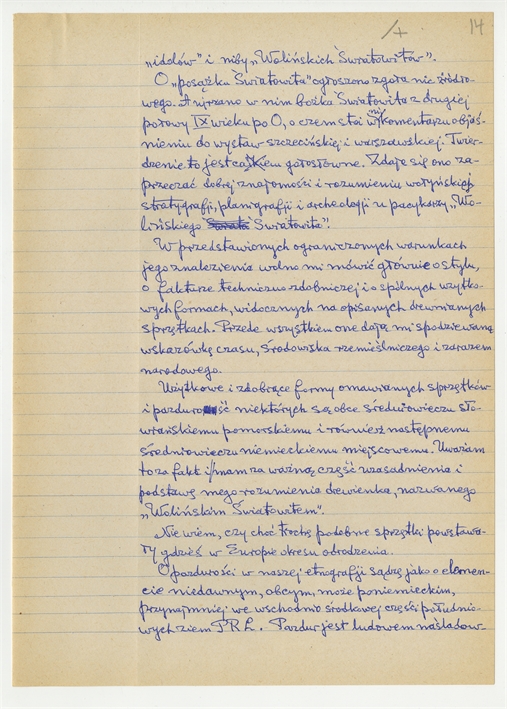 14
„idolów” i niby „Wolińskich Światowitów”.
O „posążku Światowita” ogłoszono zgoła nic źródło-
wego. A ujrzano w nim bożka Światowita z drugiej
połowy IX wieku po O, o czem stoi w komentarzu objaś-
nieniu do wystaw szczecińskiej i warszawskiej. Twier-
dzenie to jest całkiem gołosłowne. Zdaje się ono za-
przeczać dobrej znajomości i rozumieniu wolińskiej
stratygrafji, planigrafji i archeologji u pacykarzy „Wo-
lińskiego Światowita”.
W przedstawionych ograniczonych warunkach
jego znalezienia wolno mi mówić głównie o stylu,
o fakturze techniczno zdobniczej i o spólnych użytko-
wych formach, widocznych na opisanych drewnianych
sprzętkach. Przede wszystkiem one dają mi spodziewaną
wskazówkę czasu, środowiska rzemieślniczego i zarazem
narodowego.
Użytkowe i zdobiące formy omawianych sprzętków
i pazdurość niektórych są obce średniowieczu sło-
wiańskiemu pomorskiemu i również następnemu
średniowieczu niemieckiemu miejscowemu. Uważam
to za fakt i mam za ważną część uzasadnienia i
podstawę mego rozumienia drewienka, nazwanego
„Wolińskim Światowitem”.
Nie wiem, czy choć trochę podobne sprzętki powstawa-
ły gdzieś w Europie okresu odrodzenia.
O pazdurości w naszej etnografji sądzę jako o elemen-
cie niedawnym, obcym, może poniemieckim,
przynajmniej we wschodnio środkowej części południo-
wych ziem PRL. Pazdur jest ludowem naśladow-